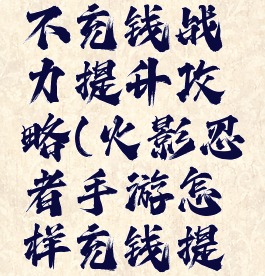 不充钱战
力提升攻
略(火影忍
者手游怎
样充钱提